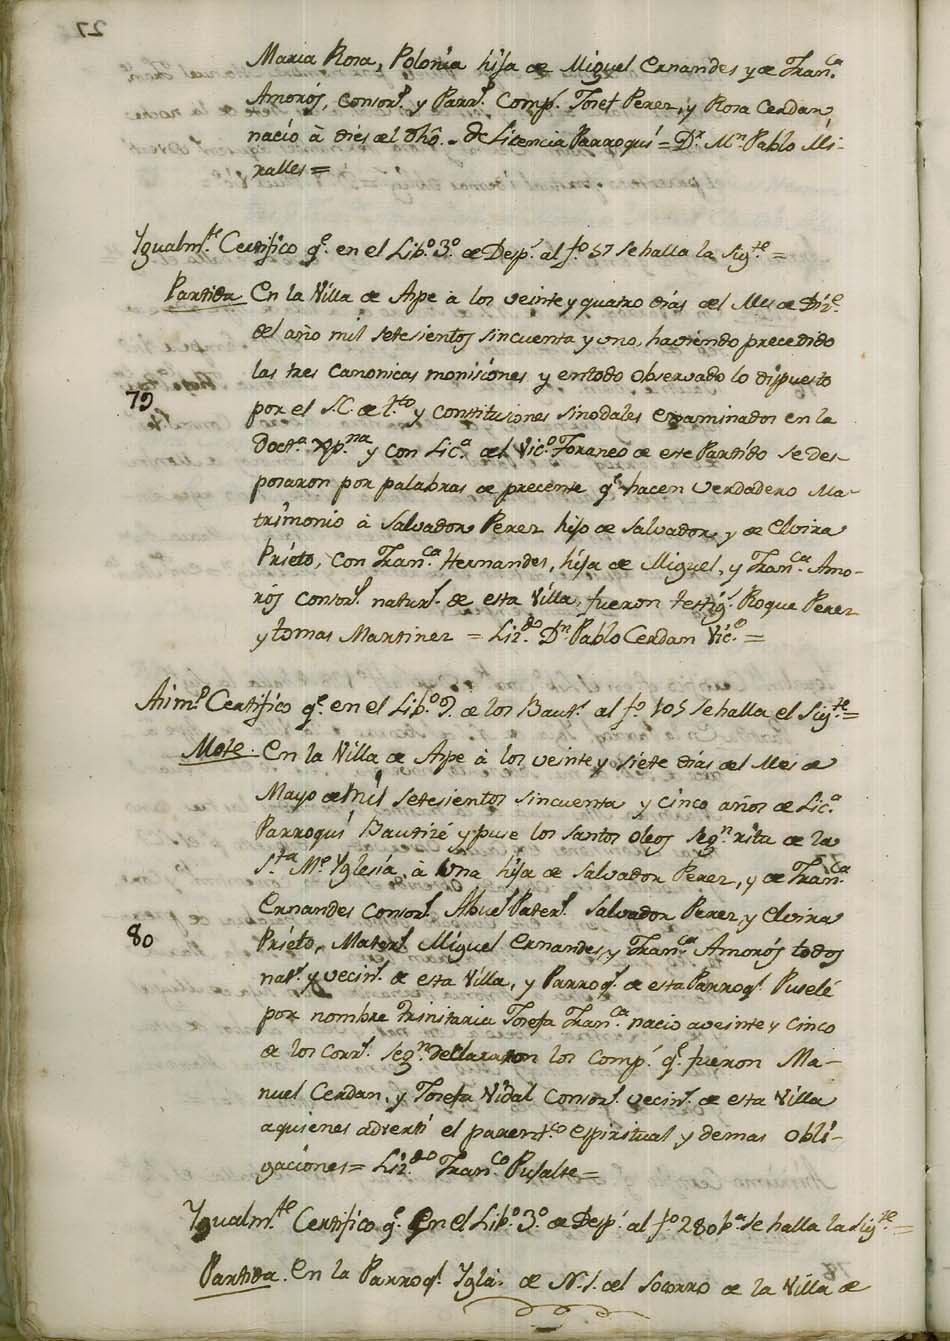 27
Maria Rosa, Polonia hija de Miguel Ernandes y de Fran.ca
Amorós, consor.s y Parr.s Comp.s Josef Perez, y Rosa Cerdan
nació à dies del dhô. de Licencia Parroqui = D.r M.n Pablo Mi-
ralles =
Ygualm.te Certifico q.e en el Lib.o 3.o de Desp.s al f.o 57 se halla la sig.te =
Partida En la Villa de Aspe à los veinte y quatro dias del Mes de Diz.e
del año mil setesientos sincuenta y uno, haviendo precedido
las tres canonicas monisiones y entodo observado lo dispuesto
79 por el S.C. de t.to y constitusiones sinodales examinados en la
Doct.a Xp.na y con Lic.a del Vic.o Foraneo de este Partido se des-
posaron por palabras de precente q.e hacen verdadero Ma-
trimonio à Salvador Perez hijo de Salvador, y de Elvira
Prieto, con Fran.ca Hernandes, hija de Miguel, y Fran.ca Amo-
rós consor.s natur.s de esta Villa, fueron testig.s Roque Perez
y tomas Martinez = Liz.do D.n Pablo Cerdan Vic.o =
Asim.o Certifico q.e en el Lib.o 9. de los Baut.s al f.o 105 se halla el sig.te =
Mote. En la Villa de Aspe à los veinte y siete dias del Mes de
Mayo de mil setesientos sincuenta y cinco años de Lic.a
Parroqui Bautizé y puse los santos oleos seg.n rita de la
S.ta M.e Yglesia, à una hija de Salvador Perez, y de Fran.ca
Ernandes consor.s Abuel.s Pater.s Salvador Perez, y Elvira
80 Prieto, Mater.s Miguel Ernandes, y Fran.ca Amorós todos
nat.s y vecin.s de esta Villa, y Parroq.s de esta Parroq.l Puselé
por nombre Trinitaria Josefa Fran.ca nacio aveinte y cinco
de los corr.s seg.n declararon los comp.s q.e fueron Ma-
nuel Cerdan, y Josefa Vidal consor.s vecin.s de esta Villa
aquienes adverti el parent.co espiritual y demas obli-
gaciones = Liz.do Fran.co Pujalte =
Ygualm.te Certifico q.e en el Lib.o 3.o de Desp.s al f.o 280 b.a se halla la sig.te =
Partida. En la Parroq.l Yglâ. de N.S. del Socorro de la Villa de